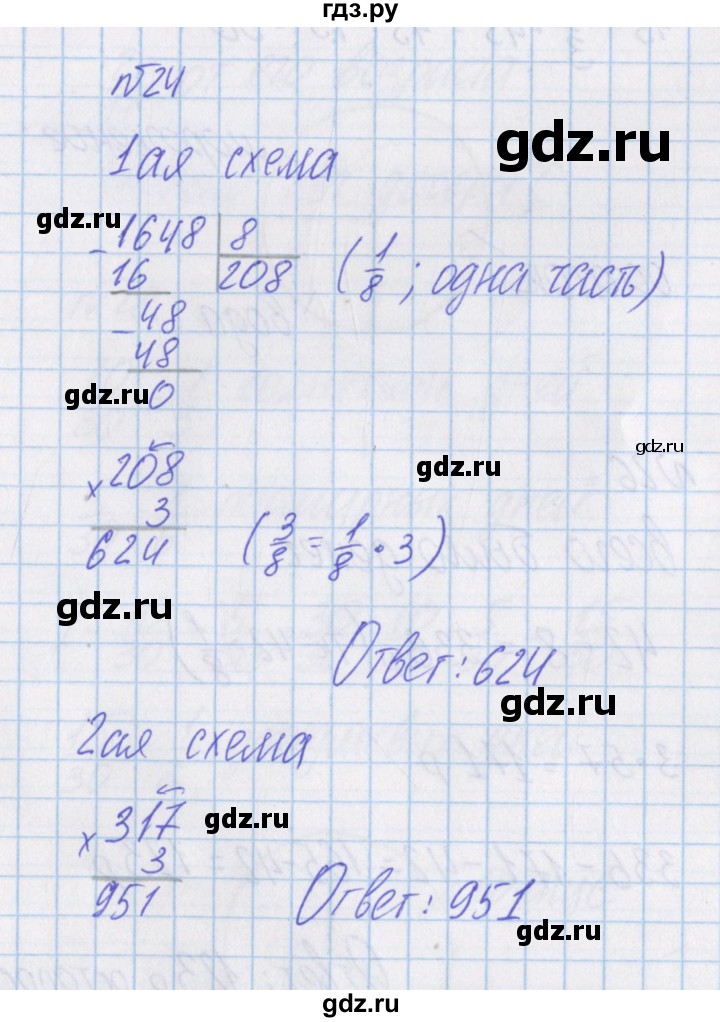 гдз.ру
№24
1ая схема
gdz.ru
gdz.ru
- 1648 | 8
16 208 (1/8; одна часть)
- 48
48
gdz.ru
0
gdz.ru
gdz.ru
× 208
3
624 (3/8 = 1/8 · 3)
gdz.ru
gdz.ru
Ответ: 624
2ая схема
× 317
gdz.ru
3
951
Ответ: 951
gdz.ru
gdz.ru